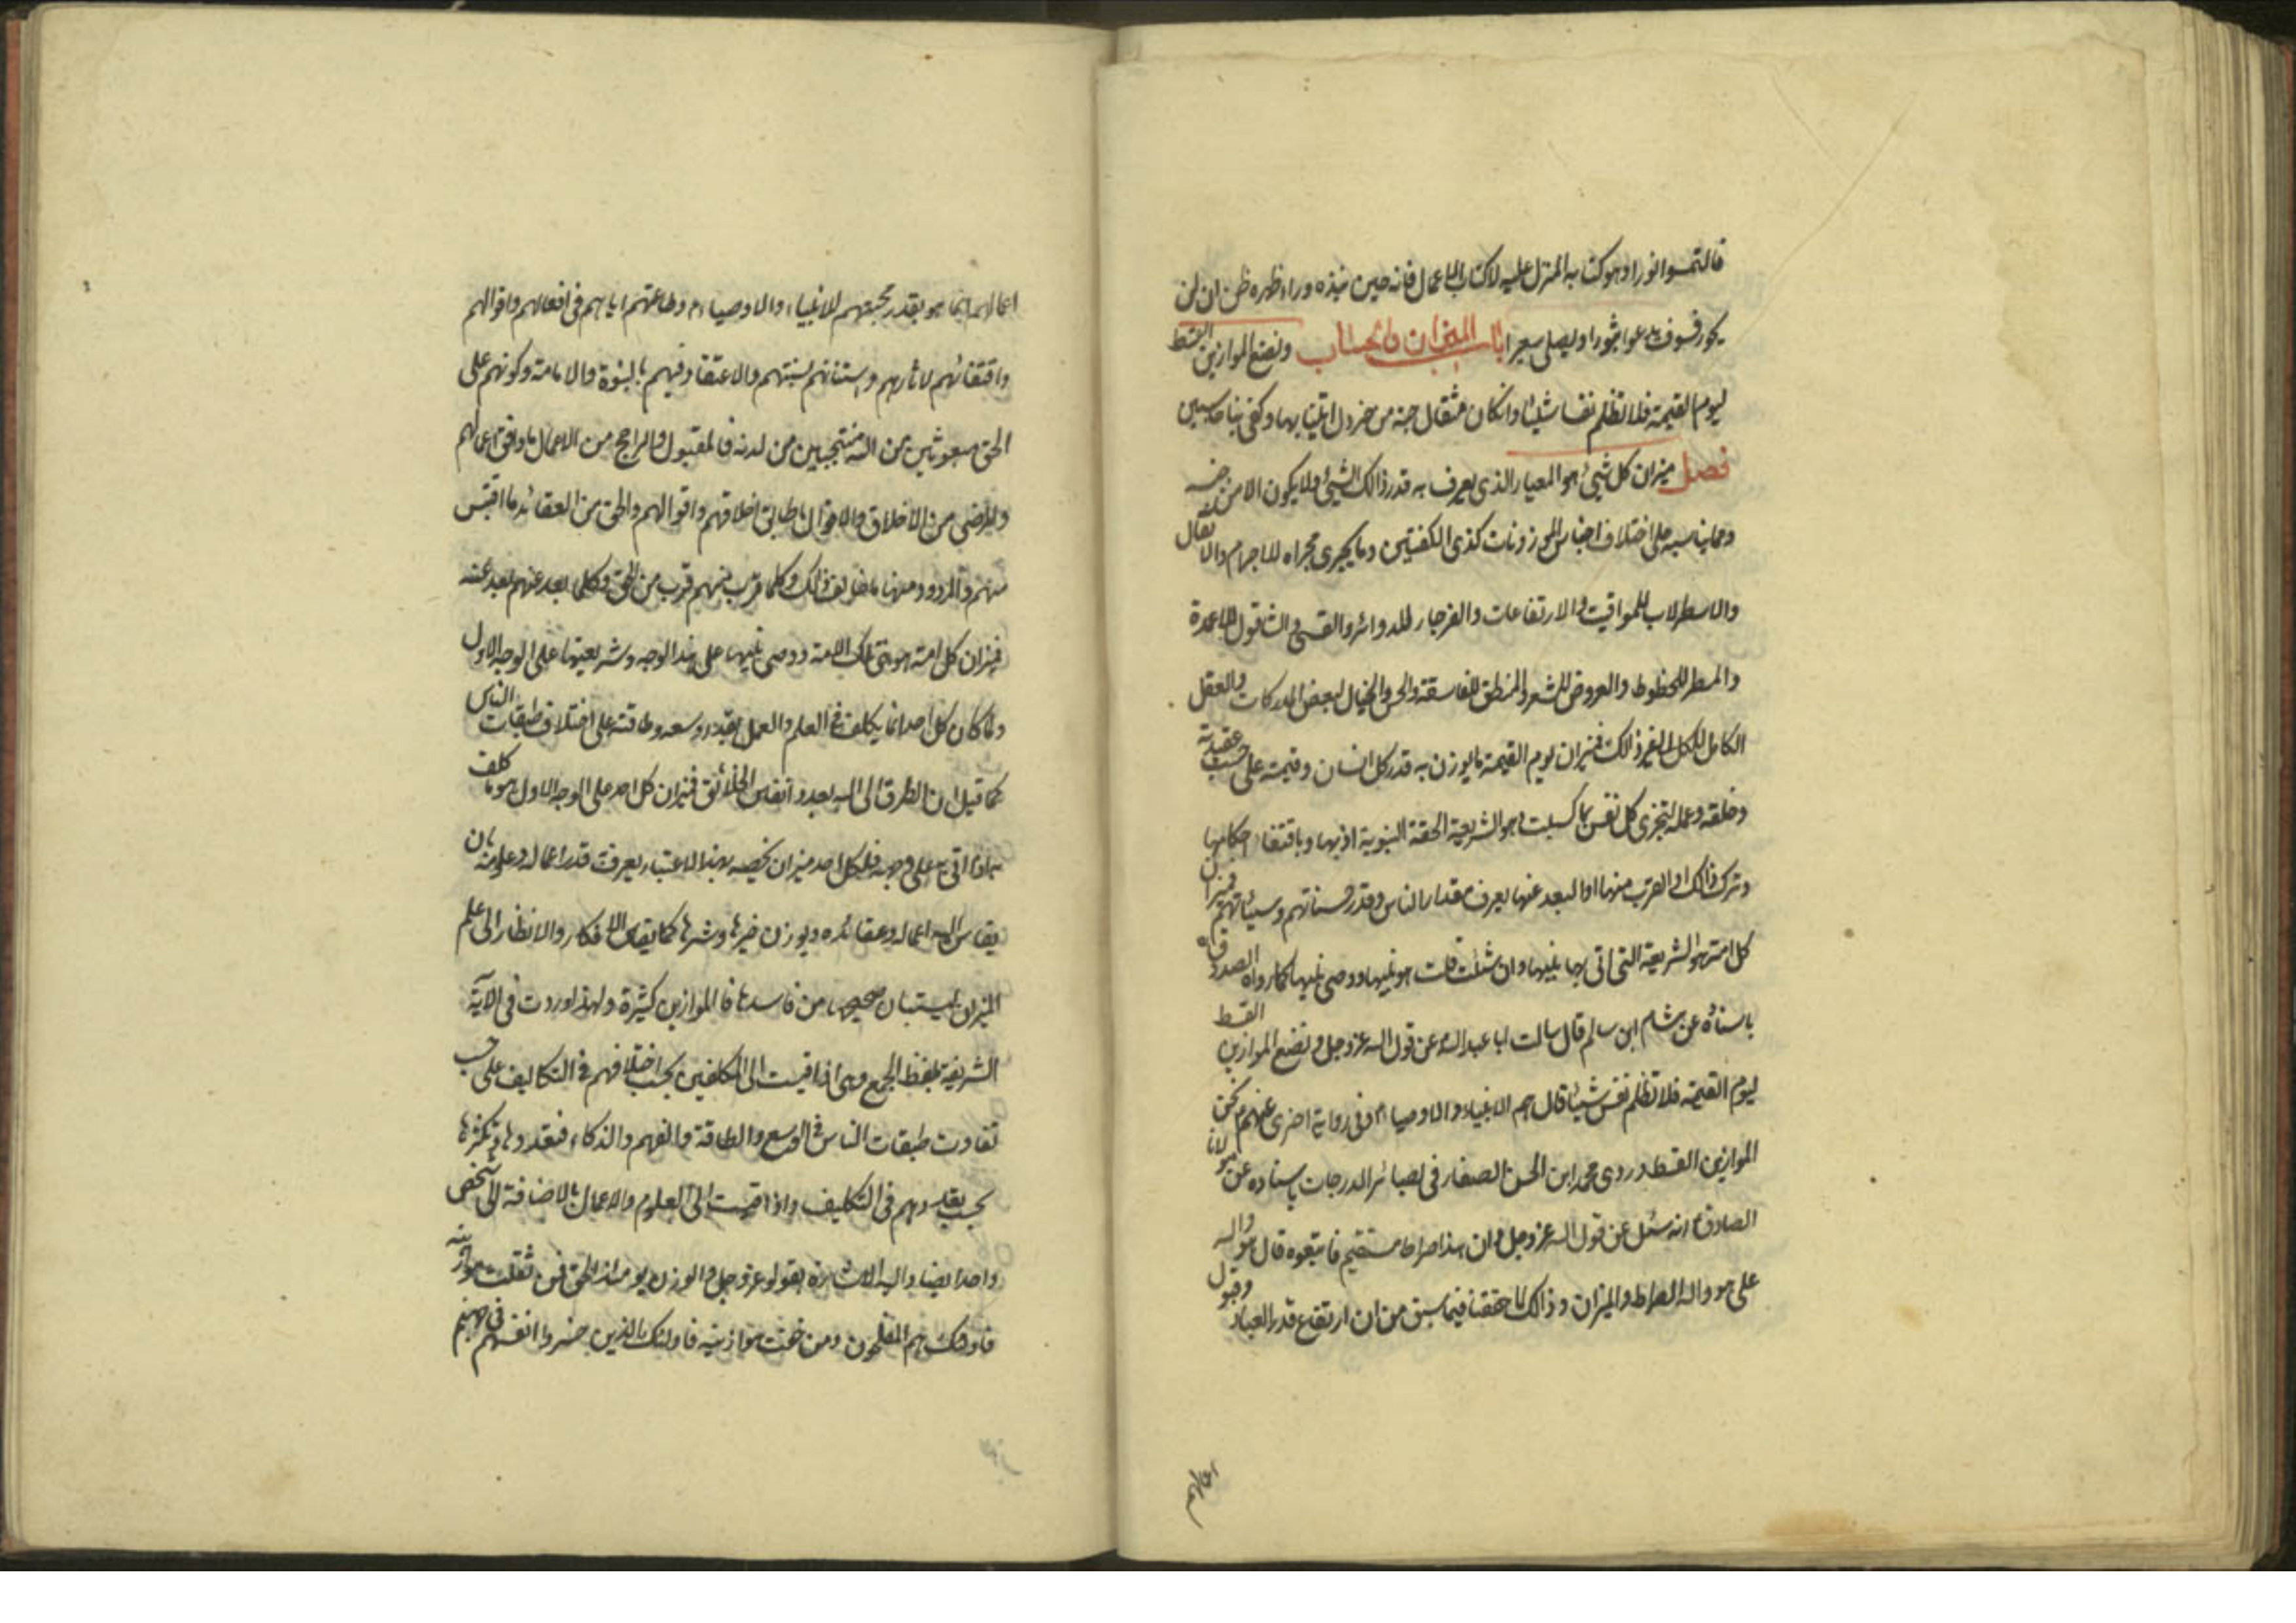 فالتمسوا نورا وهو كتابه المنزل عليه لا كتاب الاعمال فانه حين نبذه وراء ظهره ظن ان لن
يحور فسوف يدعوا ثبورا ويصلى سعيرا باب الميزان والحساب ونضع الموازين القسط
ليوم القيمة فلا تظلم نفس شيئا وان كان مثقال حبة من خردل اتينا بها وكفى بنا حاسبين
فصل ميزان كل شيئ هو المعيار الذى يعرف به قدر ذالك الشيئ ولا يكون الا من جنسه
ومما يناسبه على اختلاف اجناس الموزونات كذى الكفتين وما يجرى مجراه للاجرام والاثقال
والاسطرلاب للمواقيت والارتفاعات والفرجار للدوائر والقسى والشاقول للاعمدة
والمسطر للخطوط والعروض للشعر والمنطق للفلسفة والحس والخيال لبعض المدركات والعقل
الكامل للكل الى غير ذلك فميزان يوم القيمة ما يوزن به قدر كل انسان وقيمته على حسب عقيدته
وخلقه وعمله لتجزى كل نفس بما كسبت وهو الشريعة الحقة النبوية اذ بها وباقتفاء احكامها
وترك ذالك او القرب منها او البعد عنها يعرف مقدار الناس وقدر حسناتهم وسيئاتهم فميزان
كل امة هو الشريعة التى اتى بها نبيها وان شئت قلت هو نبيها ووصى نبيها كما رواه الصدوق ره
باسناده عن هشام ابن سالم قال سالت ابا عبد الله عن قول الله عز وجل ونضع الموازين القسط
ليوم القيمة فلا تظلم نفس شيئا قال هم الانبياء والاوصياء م وفى رواية اخرى عنهم م نحن
الموازين القسط وروى محمد ابن الحسن الصفار فى بصائر الدرجات باسناده عن مولانا
الصادق م انه سئل عن قول الله عز وجل وان هذا صراطا مستقيم فاتبعوه قال هو والله
على هو والله الصراط والميزان وذالك لما حققنا فيما سبق من ان ارتفاع قدر العباد وقبول
اعمالهم
اعمالهم انما هو بقدر محبتهم للانبياء والاوصياء م وطاعتهم اياهم فى افعالهم واقوالهم
واقتفائهم لاثارهم واستنانهم بسنتهم والاعتقاد فيهم بالنبوة والامامة وكونهم على
الحق مبعوثين من الله منتجبين من لدنه فالمقبول والراجح من الاعمال ما وافق اعمالهم
والمرضى من الاخلاق والاقوال ما طابق اخلاقهم واقوالهم والحق من العقائد ما اقتبس
منهم والمردود منها ما خالف ذالك وكلما قرب منهم قرب من الحق وكلما بعد عنهم بعد عنه
فميزان كل امة هو نبى تلك الامة ووصى نبيها على هذا الوجه وشريعتها على الوجه الاول
ولما كان كل احد انما يكلف فى العلم والعمل بقدر وسعه وطاقته على اختلاف طبقات الناس
كما قيل ان الطرق الى الله بعدد انفاس الخلائق فميزان كل احد على الوجه الاول هو ما كلف
به اذا اتى به على وجهه فلكل احد ميزان يخصه بهذا الاعتبار يعرف قدر اعماله وعلومه بان
يقاس اليه اعماله وعقائده ويوزن خيرها وشرها كما يقاس الافكار والانظار الى علم
الميزان ليستبان صحيحها من فاسدها فالموازين كثيرة ولهذا وردت فى الآية
الشريفة بلفظ الجمع وهى اذا قيست الى المكلفين بحسب اختلافهم فى التكاليف على حسب
تفاوت طبقات الناس فى الوسع والطاقة والفهم والذكاء فتعددها وتكثرها
بحسب تعددهم فى التكليف واذا قيست الى العلوم والاعمال بالاضافة الى شخص
واحد ايضا واليه الاشارة بقوله عز وجل والوزن يومئذ الحق فمن ثقلت موازينه
فاولئك هم المفلحون ومن خفت موازينه فاولئك الذين خسروا انفسهم فى جهنم